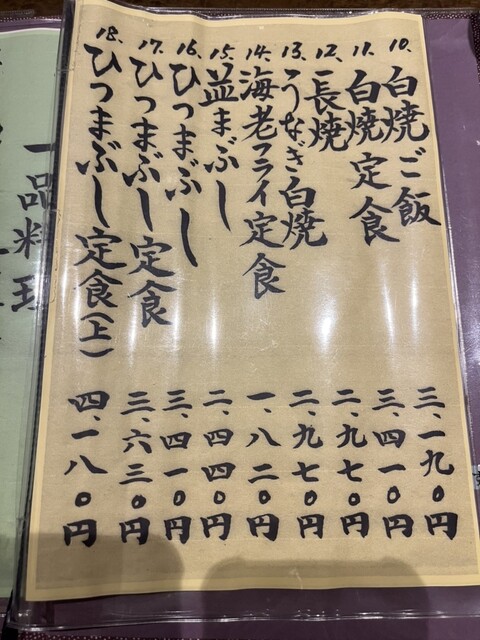 10. 白焼ご飯 三、一九0円
11. 白焼定食 三、四一0円
12. 長焼 二、九七0円
13. うなぎ白焼 二、九七0円
14. 海老フライ定食 一、八二0円
15. 益まぶし 二、四四0円
16. ひつまぶし 三、四一0円
17. ひつまぶし定食 三、六三0円
18. ひつまぶし定食(上) 四、一八0円
一品料理